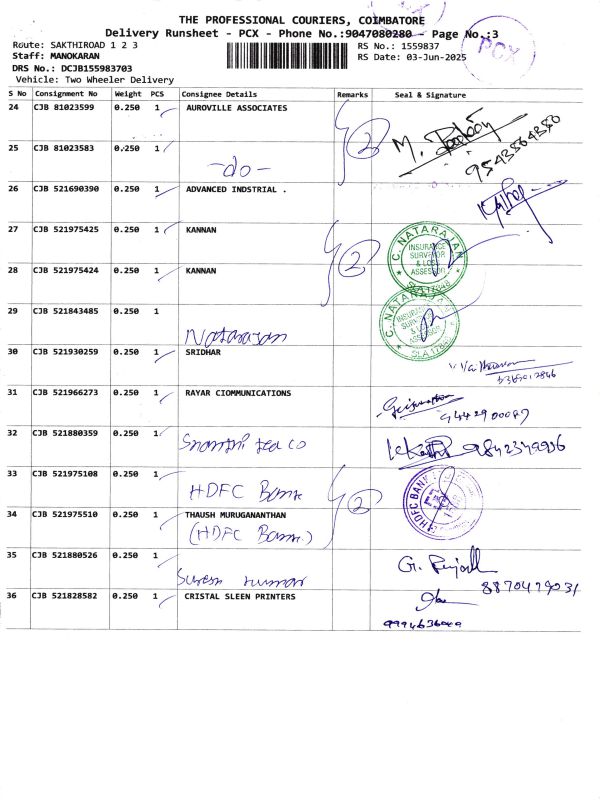 THE PROFESSIONAL COURIERS, COIMBATORE
Delivery Runsheet - PCX - Phone No.:9047080280 - Page No.:3
PCX
Route: SAKTHIROAD 1 2 3
Staff: MANOKARAN
DRS No.: DCJB155983703
Vehicle: Two Wheeler Delivery
RS No.: 1559837
RS Date: 03-Jun-2025
S No Consignment No Weight PCS Consignee Details Remarks Seal & Signature
24 CJB 81023599 0.250 1 AUROVILLE ASSOCIATES
2
25 CJB 81023583 0.250 1 -do-
26 CJB 521690390 0.250 1 ADVANCED INDSTRIAL .
27 CJB 521975425 0.250 1 KANNAN
2
C. NATARAJAN
INSURANCE
SURVEYOR
& LOSS
ASSESSOR
28 CJB 521975424 0.250 1 KANNAN
29 CJB 521843485 0.250 1 Natarajan
C. NATARAJAN
30 CJB 521930259 0.250 1 SRIDHAR
31 CJB 521966273 0.250 1 RAYAR CIOMMUNICATIONS
9442900087
32 CJB 521880359 0.250 1 tea co
33 CJB 521975108 0.250 1 HDFC Bank
2
HDFC BANK
34 CJB 521975510 0.250 1 THAUSH MURUGANANTHAN
(HDFC Bank.)
35 CJB 521880526 0.250 1 Suresh kumar
G.
8870479031
36 CJB 521828582 0.250 1 CRISTAL SLEEN PRINTERS